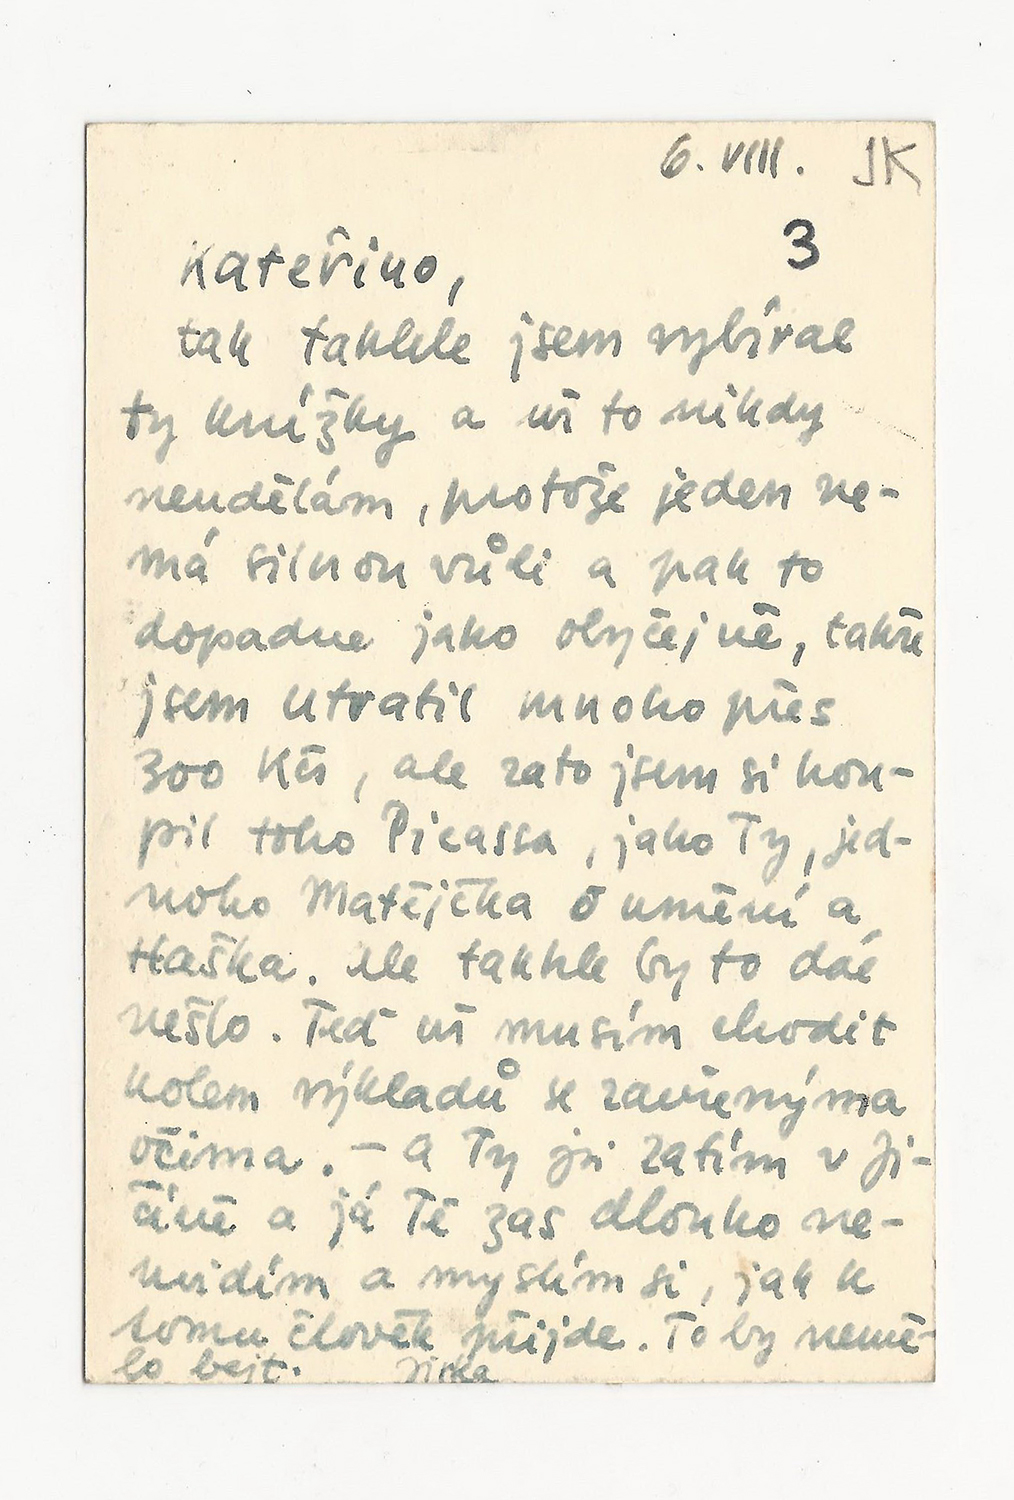 6. VIII. JK
3
Kateřino,
tak takhle jsem vybíral
ty knížky a už to nikdy
neudělám, protože jeden ne-
má silnou vůli a pak to
dopadne jako obyčejně, takže
jsem utratil mnoho přes
300 Kčs, ale zato jsem si kou-
pil toho Picassa, jako Ty, jed-
noho Matějčka o umění a
Haška. Ale takhle by to dál
nešlo. Teď už musím chodit
kolem výkladů se zavřenýma
očima. – A Ty jsi zatím v Ji-
číně a já Tě zas dlouho ne-
uvidím a myslím si, jak k
tomu člověk přijde. To by nemě-
lo bejt. Jirka